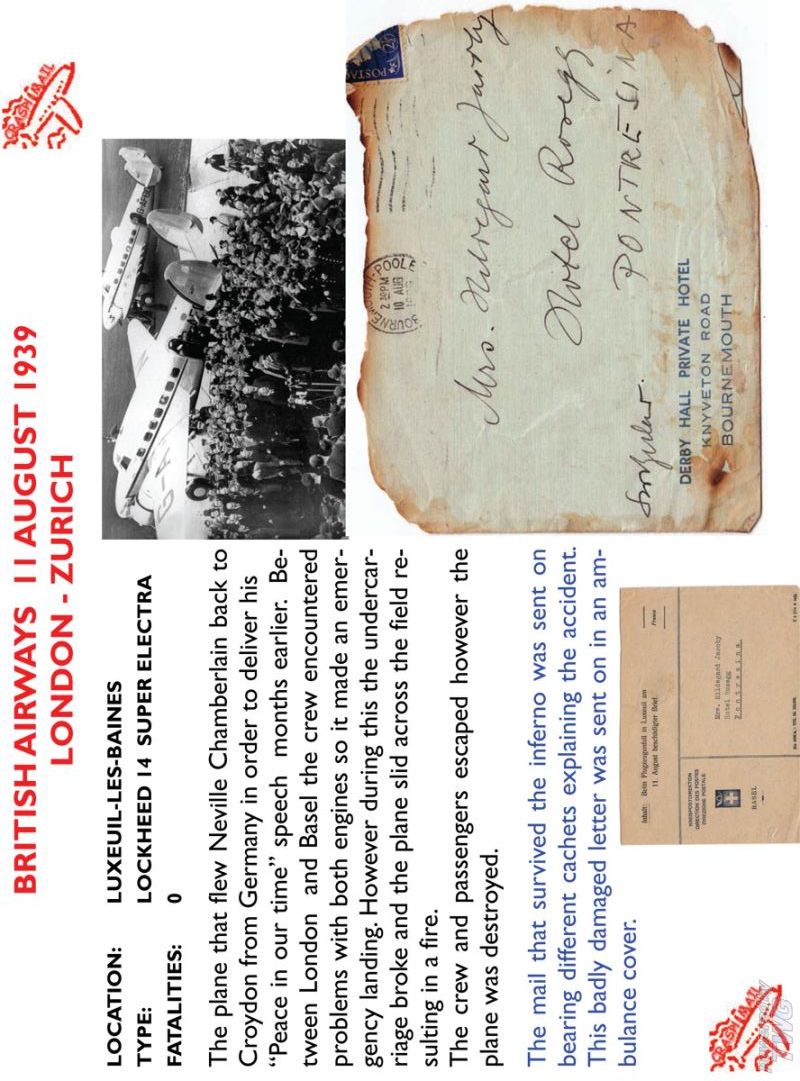 CRASH MAIL
BRITISH AIRWAYS 11 AUGUST 1939
LONDON - ZURICH
LOCATION: LUXEUIL-LES-BAINES
TYPE: LOCKHEED 14 SUPER ELECTRA
FATALITIES: 0
The plane that flew Neville Chamberlain back to
Croydon from Germany in order to deliver his
“Peace in our time” speech months earlier. Be-
tween London and Basel the crew encountered
problems with both engines so it made an emer-
gency landing. However during this the undercar-
riage broke and the plane slid across the field re-
sulting in a fire.
The crew and passengers escaped however the
plane was destroyed.
The mail that survived the inferno was sent on
bearing different cachets explaining the accident.
This badly damaged letter was sent on in an am-
bulance cover.
G-A
POSTAG
BOURNEMOUTH-POOLE
2 30PM
10 AUG
Mrs. Hildegard Jacoby
Hotel Rosegg
PONTRESINA
DERBY HALL PRIVATE HOTEL
KNYVETON ROAD
BOURNEMOUTH
Inhalt: Beim Flugzeugunfall in Luxeuil am
11. August beschädigter Brief.
KREISPOSTDIREKTION
DIRECTION DES POSTES
DIREZIONE POSTALE
BASEL
Mrs. Hildegard Jacoby
Hotel Rosegg
Pontresina
CRASH MAIL